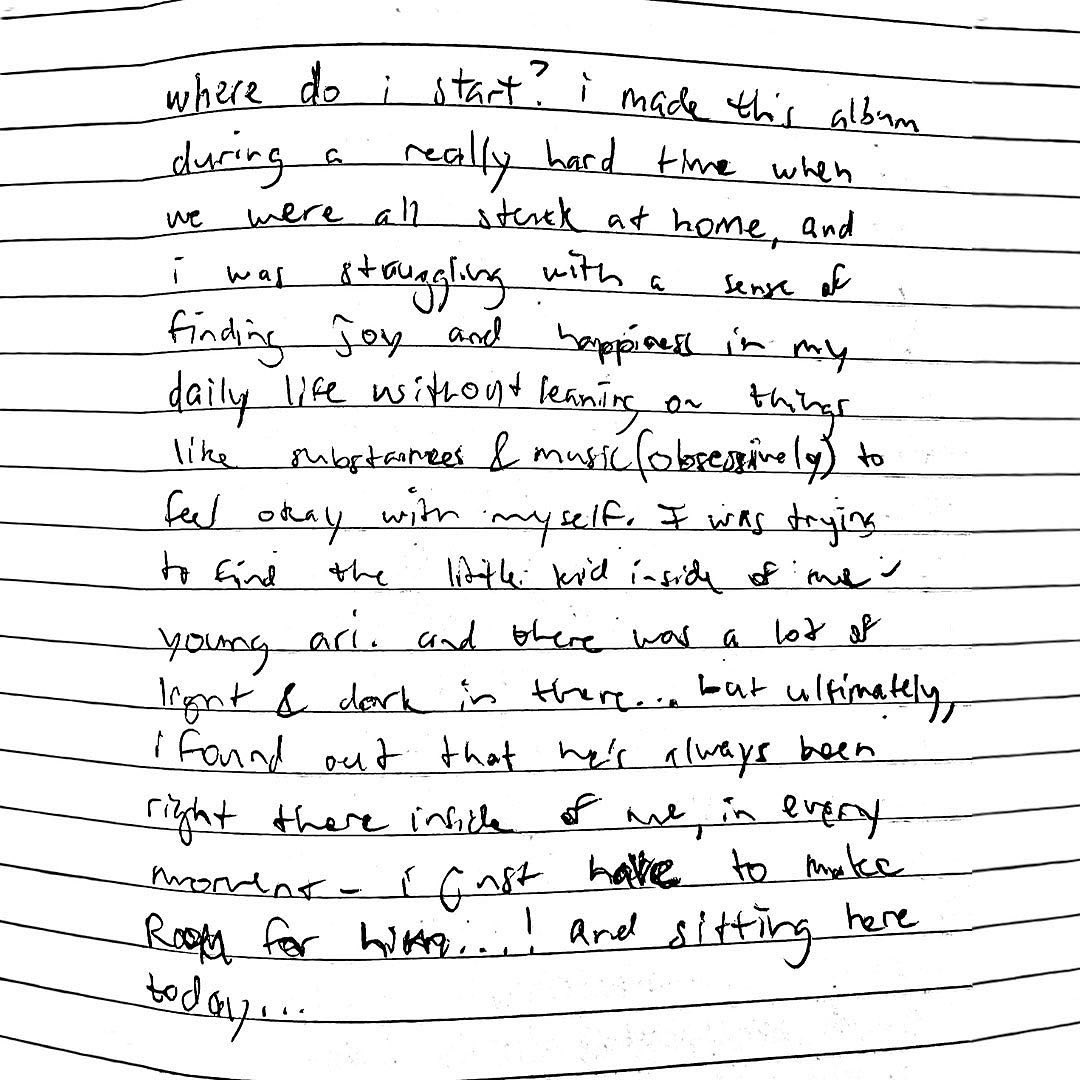 where do i start? i made this album
during a really hard time when
we were all stuck at home, and
i was struggling with a sense of
finding joy and happiness in my
daily life without leaning on things
like substances & music (obsessively) to
feel okay with myself. I was trying
to find the little kid inside of me -
young ari. and there was a lot of
light & dark in there... but ultimately,
i found out that he's always been
right there inside of me, in every
moment - i just have to make
Room for him...! and sitting here
today...